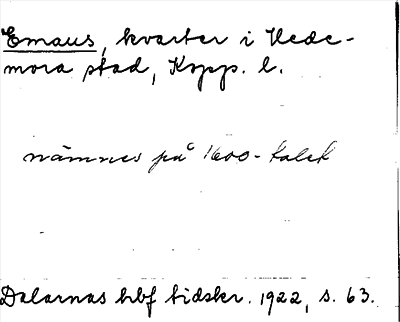 Emaus, kvarter i Hede-
mora stad, Kopp. l.
nämnes på 1600-talet
Dalarnas hbf tidskr. 1922, s. 63.